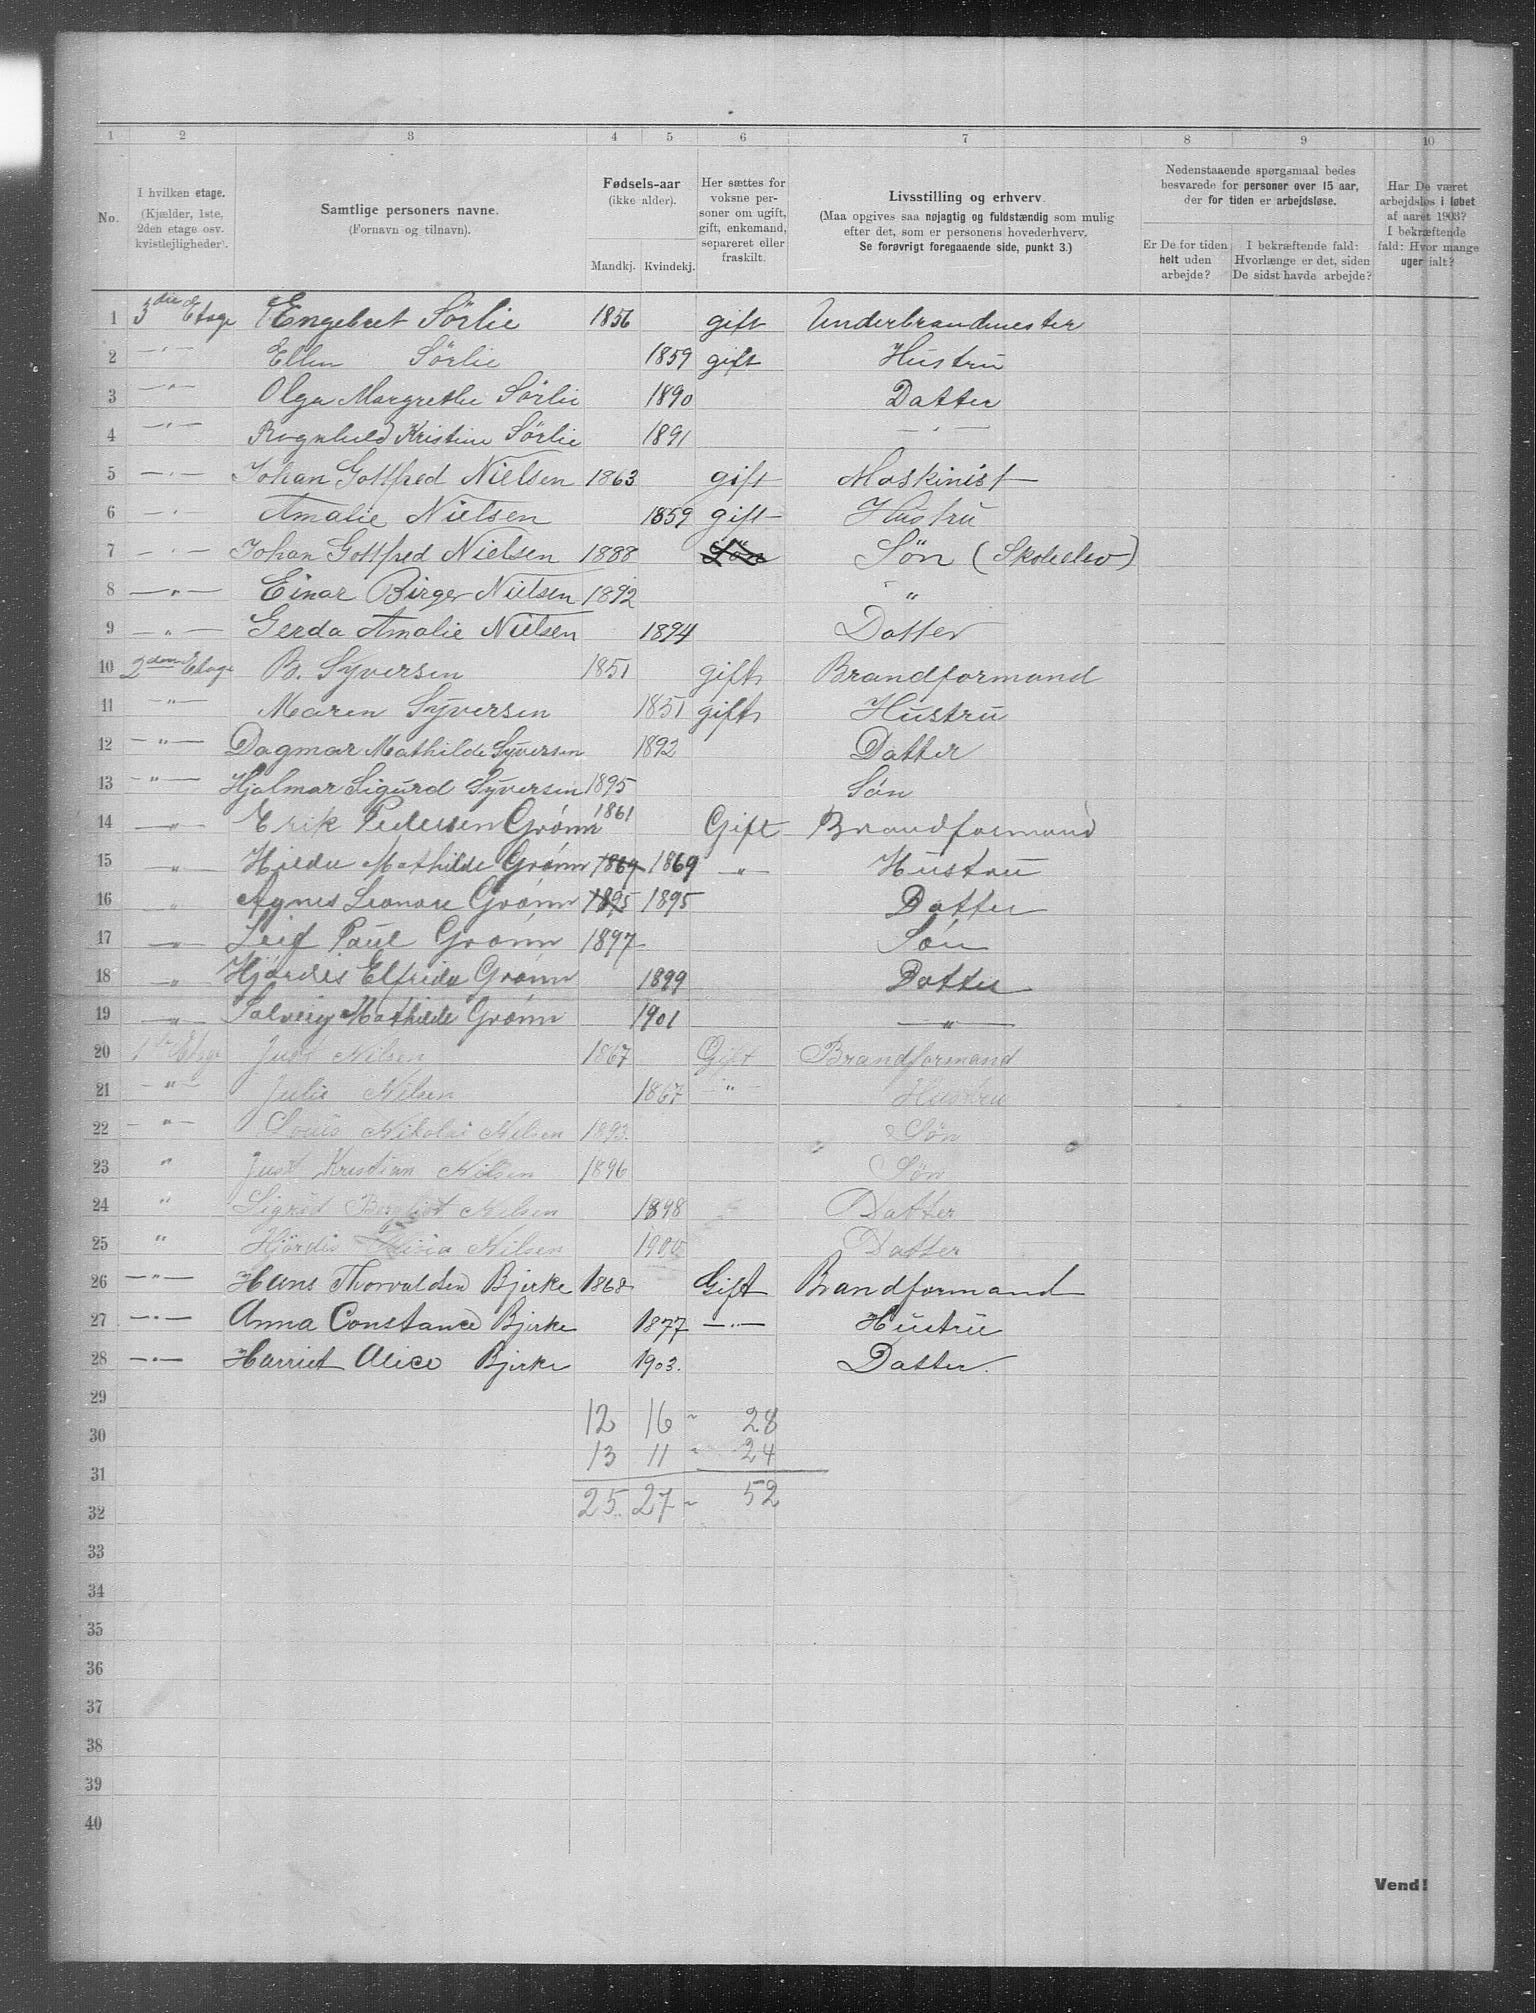 1 2 3 4 5 6 7 8 9 10
No.
I hvilken etage.
(Kjælder, 1ste,
2den etage osv.
kvistlejligheder).
Samtlige personers navne.
(Fornavn og tilnavn).
Fødsels-aar
(ikke alder).
Mandkj. Kvindekj.
Her sættes for
voksne per-
soner om ugift,
gift, enkemand,
separeret eller
fraskilt.
Livsstilling og erhverv.
(Maa opgives saa nøjagtig og fuldstændig som mulig
efter det, som er personens hovederhverv.
Se forøvrigt foregaaende side, punkt 3.)
Nedenstaaende spørgsmaal bedes
besvarede for personer over 15 aar,
der for tiden er arbejdsløse.
Er De for tiden
helt uden
arbejde?
I bekræftende fald:
Hvorlænge er det, siden
De sidst havde arbejde?
Har De været
arbejdsløs i løbet
af aaret 1903?
I bekræftende
fald: Hvor mange
uger ialt?
1 3die Etage Engebret Sørlie 1856 gift Underbrandmester
2 —"— Ellen Sørlie 1859 gift Hustru
3 —"— Olga Margrethe Sørlie 1890 Datter
4 —"— Ragnhild Kristine Sørlie 1891 —"—
5 —"— Johan Gottfred Nielsen 1863 gift Maskinist
6 —"— Amalie Nielsen 1859 gift Hustru
7 —"— Johan Gottfred Nielsen 1888 Søn Søn (Skoleelev)
8 —"— Einar Birger Nielsen 1892 "
9 —"— Gerda Amalie Nielsen 1894 Datter
10 2den Etage B. Syversen 1851 gift Brandformand
11 —"— Maren Syversen 1851 gift Hustru
12 —"— Dagmar Mathilde Syversen 1892 Datter
13 —"— Hjalmar Sigurd Syversen 1895 Søn
14 —"— Erik Pedersen Grønn 1861 Gift Brandformand
15 —"— Hilda Mathilde Grønn 1869 1869 —"— Hustru
16 " Agnes Leonore Grønn 1895 1895 Datter
17 —"— Leif Paul Grønn 1897 Søn
18 —"— Hjørdis Elfrida Grønn 1899 Datter
19 —"— Solveig Mathilde Grønn 1901 —"—
20 1ste Etage Just Nilsen 1867 Gift Brandformand
21 —"— Julie Nilsen 1867 —"— Hustru
22 —"— Louis Nikolai Nilsen 1893 Søn
23 " Just Kristian Nilsen 1896 Søn
24 " Sigrid Bergljot Nilsen 1898 Datter
25 " Hjørdis Nilsen 1900 Datter
26 —"— Hans Thorvaldsen Bjerke 1868 Gift Brandformand
27 —"— Anna Constance Bjerke 1877 —"— Hustru
28 —"— Harriet Alice Bjerke 1903. Datter.
29
12 16 - 28
30
13 11 - 24
31
25 27 - 52
32
33
34
35
36
37
38
39
40
Vend!